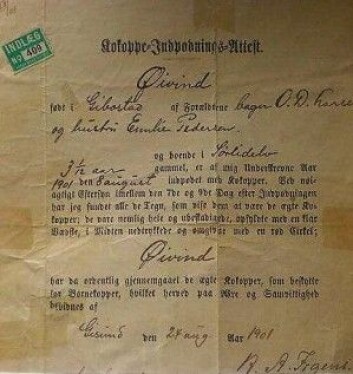 INDLÆG
No 409
Kokoppe-Indpodnings-Attest.
Øivind
født i Gibostad af Forældrene bager O. D.
og hustru Emilie Pedersen.
og boende i Sørlidelv
3½ aar gammel, er af mig Underskrevne Aar
1901 den 8 august indpodet med Kokopper. Ved nøi-
agtigt Eftersyn imellem den 7de og 9de Dag efter Indpodningen
har jeg fundet alle de Tegn, som vise dem at være de ægte Ko-
kopper; de vare nemlig hele og ubeskadigede, opfyldte med en klar
Vædske, i Midten nedtrykkede og omgivne med en rød Cirkel;
Øivind
har da ordentlig gjennemgaaet de ægte Kokopper, som beskytte
for Børnekopper, hvilket herved paa Ære og Samvittighed
bevidnes af
den 24 aug. Aar 1901